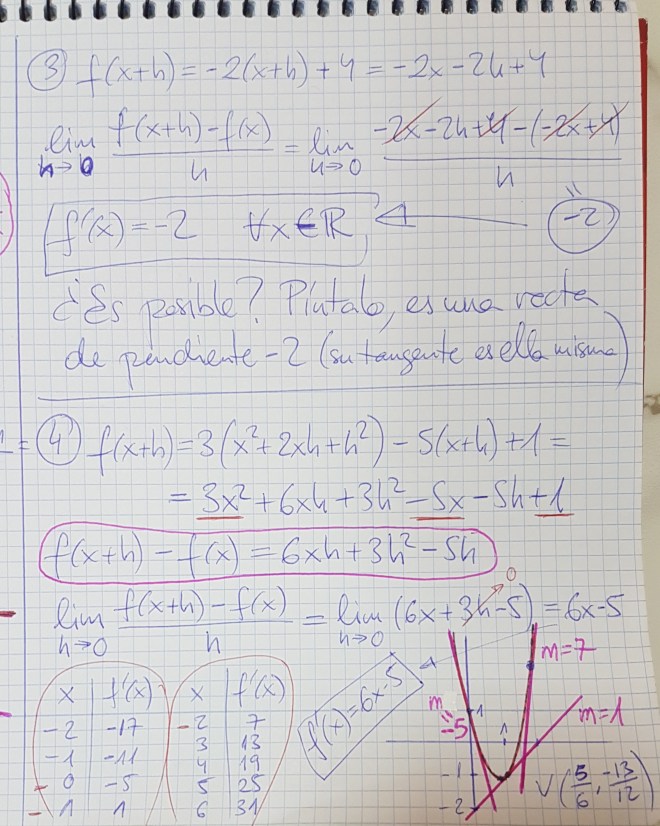 ③ f(x+h) = -2(x+h) + 4 = -2x - 2h + 4
lim h→0 (f(x+h) - f(x))/h = lim h→0 (-2x - 2h + 4 - (-2x + 4))/h
f'(x) = -2 ∀x∈ℝ
= -2
¿Es posible? Píntalo, es una recta
de pendiente -2 (su tangente es ella misma)
④ f(x+h) = 3(x² + 2xh + h²) - 5(x+h) + 1 =
= 3x² + 6xh + 3h² - 5x - 5h + 1
f(x+h) - f(x) = 6xh + 3h² - 5h
0
lim h→0 (f(x+h) - f(x))/h = lim h→0 (6x + 3h - 5) = 6x - 5
f'(x) = 6x - 5
x | f'(x)
-2 | -17
-1 | -11
0 | -5
1 | 1
x | f'(x)
2 | 7
3 | 13
4 | 19
5 | 25
6 | 31
m = -5
m = 7
m = 1
1
1
-1
-2
V(5/6, -13/12)